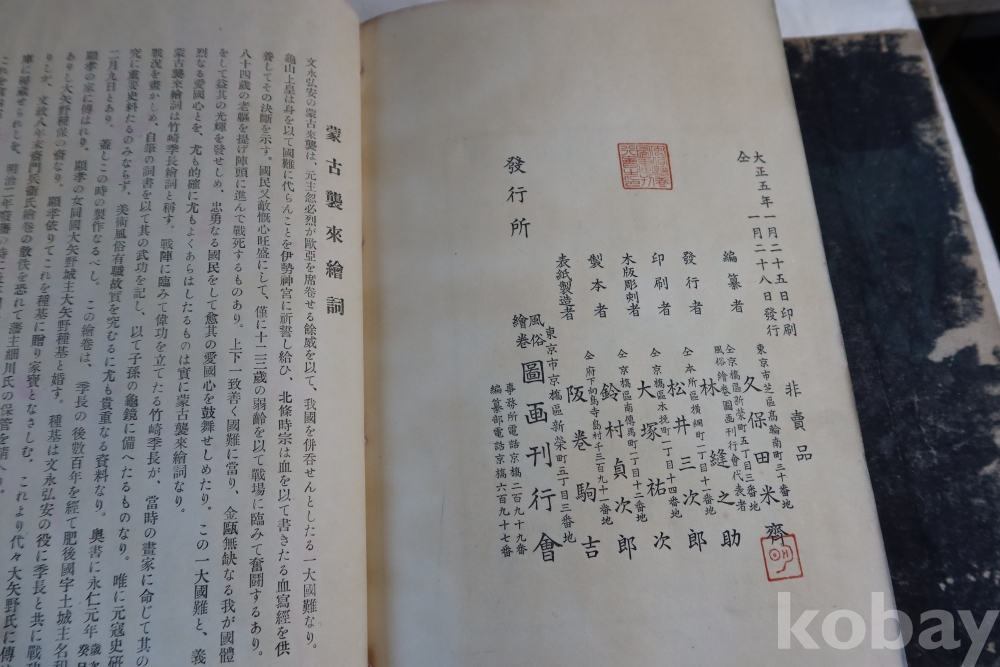 大正五年一月二十五日印刷
仝　一月二十八日發行
非賣品
東京市芝區高輪南町三十番地
編纂者　久保田米齊
仝京橋區新榮町五丁目三番地
風俗繪卷圖畫刊行會代表者
發行者　林縫之助
仝本所區橫網町一丁目十一番地
印刷者　松井三次郎
仝京橋區木挽町一丁目十四番地
木版彫刻者　大塚祐次
仝京橋區南傳馬町一丁目十二番地
製本者　鈴村貞次郎
仝府下向島寺島村千三百九十一番地
表紙製造者　阪卷駒吉
發行所
東京市京橋區新榮町五丁目三番地
風俗繪卷圖画刊行會
事務所電話京橋二百九十九番
編纂部電話京橋六百九十七番
蒙古襲來繪詞
文永弘安の蒙古來襲は、元主忽必烈が歐亞を席卷せる餘威を以て、我國を併呑せんとしたる一大國難なり。
龜山上皇は身を以て國難に代らんことを伊勢神宮に祈誓し給ひ、北條時宗は血を以て書きたる血寫經を供
養してその決斷を示す。國民又敵愾心旺盛にして、僅に十二三歲の弱齡を以て戰場に臨みて奮鬪するあり。
八十四歲の老軀を提げ陣頭に進んで戰死するものあり。上下一致善く國難に當り、金甌無缺なる我が國體
をして益其の光輝を發せしめ、忠勇なる國民をして愈其の愛國心を鼓舞せしめたり。この一大國難と、義
烈なる愛國心とを、尤も的確に尤もよくあらはしたるものは實に蒙古襲來繪詞なり。
蒙古襲來繪詞は竹崎季長繪詞と稱す。戰陣に臨みて偉功を立てたる竹崎季長が、當時の畫家に命じて其の
戰況を畫かしめ、自筆の詞書を以て其の武功を記し、以て子孫の龜鏡に備へたるものなり。唯に元寇史硏
究に重要史料たるのみならず、美術風俗有職故實を究むるに尤も貴重なる資料なり。奧書に永仁元年
二月九日とあり。蓋しこの時の製作なるべし。この繪卷は、季長の後數百年を經て肥後國宇土城主名和
顯孝の家に傳はれり。顯孝の女同國大矢野城主大矢野種基と婚す。種基は文永弘安の役に季長と共に戰功
ありし大矢野種保の裔なり。顯孝依りてこれを種基に贈り家寶となさしむ。これより代々大矢野氏に傳